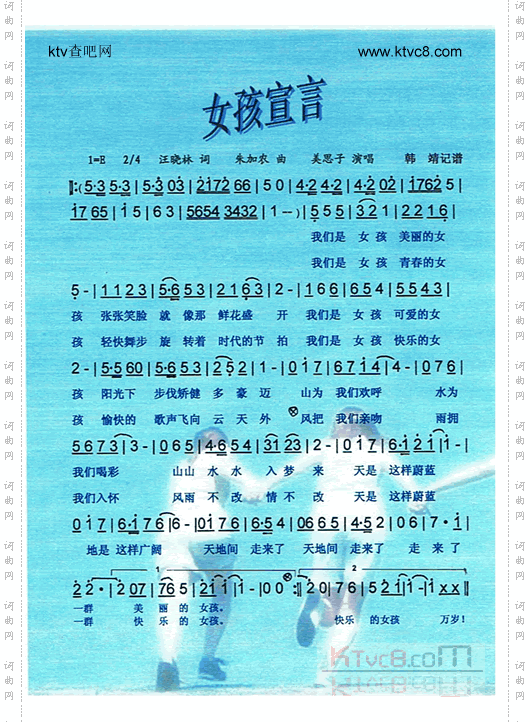 ktv查吧网 www.ktvc8.com
女孩宣言
1=E 2/4 汪晓林 词 朱加农 曲 美思子 演唱 韩 靖记谱
𝄆(5·3 5·3 | 5·3 03 | 2172 66 | 5 0 | 4·2 4·2 | 4·2 02 | 1762 5 |
1765 | 1 5 | 6 3 | 5654 3432 | 1 -- ) | 5 5 5 | 3 2 1 | 2 2 1 6 |
我们是 女 孩 美丽的女
我们是 女 孩 青春的女
5 - | 1 1 2 3 | 5·6 5 3 | 2 1 6 3 | 2 - | 1 6 6 | 6 5 4 | 5 5 4 3 |
孩 张张笑脸 就 像那 鲜花盛 开 我们是 女 孩 可爱的女
孩 轻快舞步 旋 转着 时代的节 拍 我们是 女 孩 快乐的女
2 - | 5·5 6 0 | 5·6 5 3 | 2 5 2 | 1 - | 0 1 7 | 6 7 1 4 | 4 - | 0 7 6 |
孩 阳光下 步伐矫健 多 豪 迈 山为 我们欢呼 水为
孩 愉快的 歌声飞向 云 天 外 风把 我们亲吻 雨拥
5 6 7 3 | 3 - | 0 6 5 | 4·6 5 4 | 3 1 2 3 | 2 - | 0 1 7 | 6·1 2 1 | 1 - |
我们喝彩 山山 水 水 入 梦 来 天是 这样蔚蓝
我们入怀 风雨 不 改 情 不 改 天是 这样蔚蓝
0 1 7 | 6·1 7 6 | 6 - | 0 1 7 6 | 6·5 4 | 0 6 6 5 | 4·5 2 | 0 6 | 7 · 1 |
地是 这样广阔 天地间 走来了 天地间 走来了 走 来 了
1 2
2 2· | 2 0 7 | 7 6 5 | 2 1 1 | 1 - | 0 0 :‖ 2 0 | 7 6 | 5 2 1 | 1 - | 1 - | x x ‖
一群 美 丽 的 女孩。
一群 快 乐 的 女孩。 快乐 的 女孩 万岁!
KTvc8.com
词曲网
词曲网
词曲网
词曲网
词曲网
词曲网
词曲网
词曲网
词曲网
词曲网
词曲网
词曲网